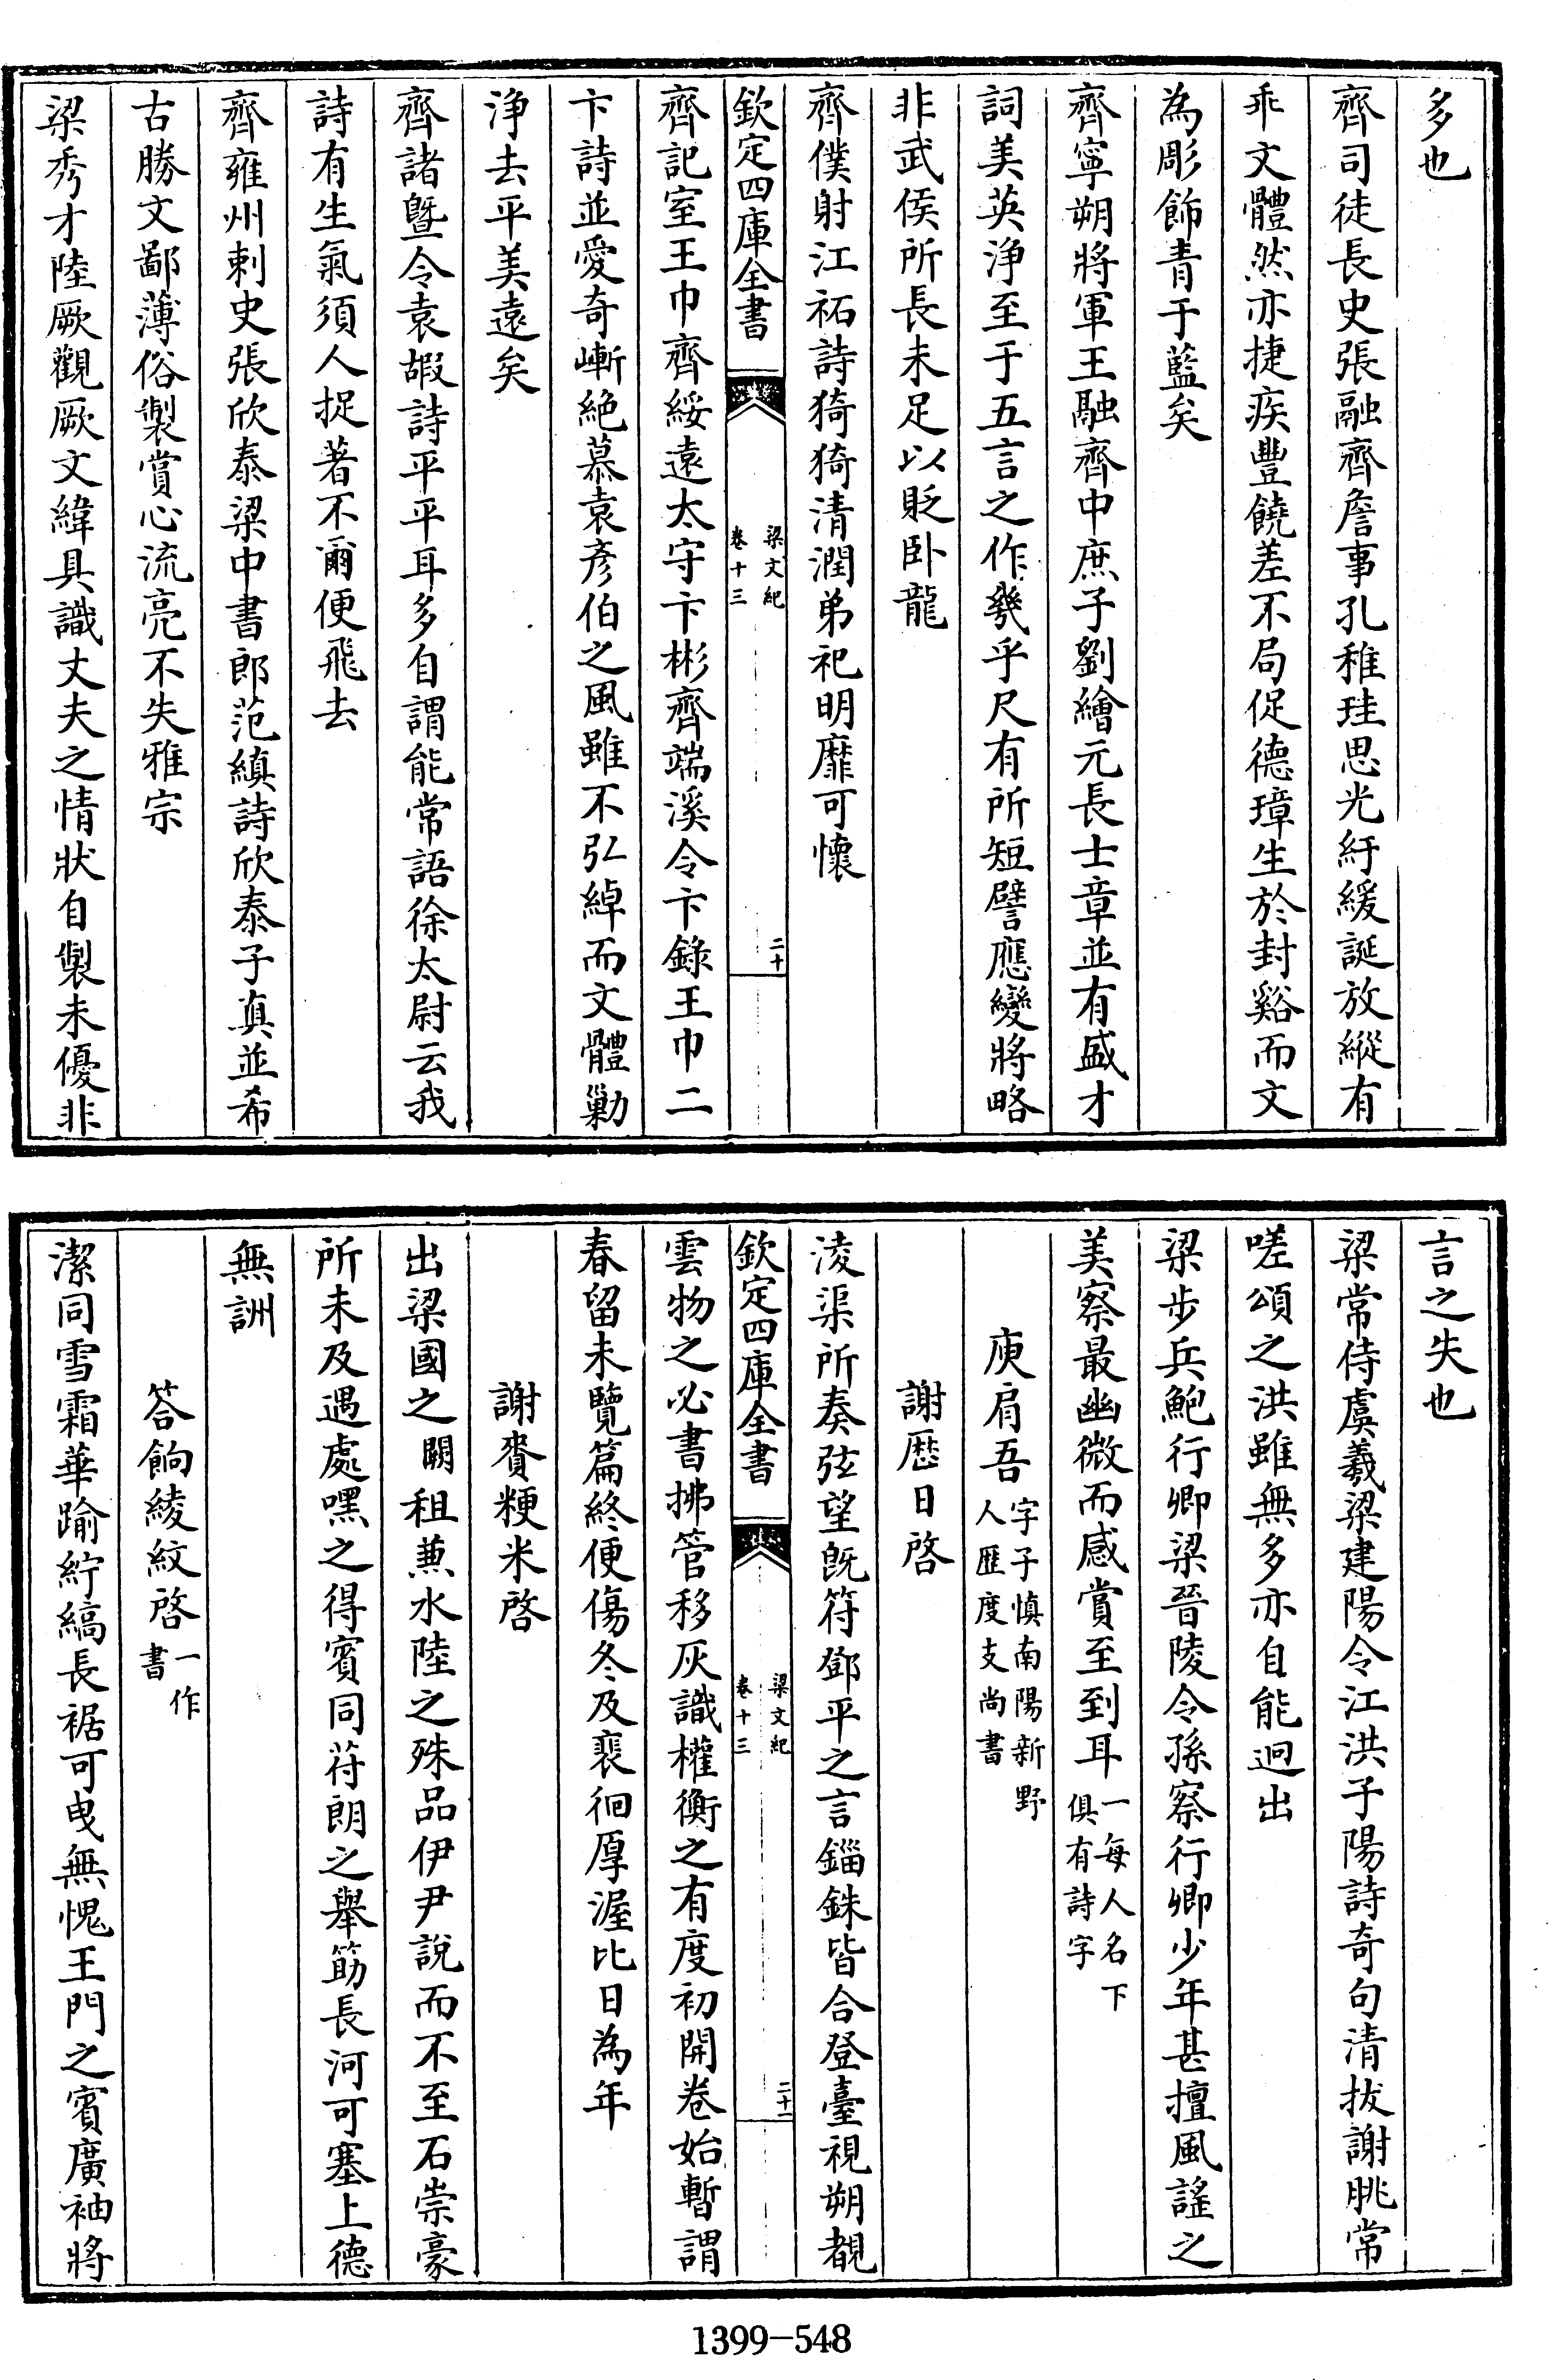 多也
齊司徒長史張融齊詹事孔稚珪思光紆緩誕放縱有
乖文體然亦捷疾豐饒差不局促德璋生於封谿而文
為彫飾青于藍矣
齊寧朔將軍王融齊中庶子劉繪元長士章並有盛才
詞美英浄至于五言之作幾乎尺有所短譬應變將略
非武侯所長未足以貶卧龍
齊僕射江祏詩猗猗清潤弟祀明靡可懷
欽定四庫全書
梁文紀
卷十三
二十
齊記室王巾齊綏遠太守卞彬齊端溪令卞錄王巾二
卞詩並愛奇嶄絶慕袁彦伯之風雖不弘綽而文體勦
浄去平美遠矣
齊諸暨令袁嘏詩平平耳多自謂能常語徐太尉云我
詩有生氣須人捉著不爾便飛去
齊雍州刺史張欣泰梁中書郎范縝詩欣泰子真並希
古勝文鄙薄俗製賞心流亮不失雅宗
梁秀才陸厥觀厥文緯具識丈夫之情狀自製未優非
言之失也
梁常侍虞羲梁建陽令江洪子陽詩奇句清拔謝朓常
嗟頌之洪雖無多亦自能迥出
梁步兵鮑行卿梁晉陵令孫察行卿少年甚擅風謡之
美察最幽微而感賞至到耳一每人名下俱有詩字
庾肩吾字子慎南陽新野人歴度支尚書
謝歴日啓
淩渠所奏弦望既符鄧平之言錙銖皆合登臺視朔覩
欽定四庫全書
梁文紀
卷十三
二十一
雲物之必書拂管移灰識權衡之有度初開卷始暫謂
春留未覽篇終便傷冬及裴徊厚渥比日為年
謝賚粳米啓
出梁國之闕租兼水陸之殊品伊尹說而不至石崇豪
所未及遇處嘿之得賓同苻朗之舉筯長河可塞上德
無詶
答餉綾紋啓一作書
潔同雪霜華踰紵縞長裾可曳無愧王門之賓廣袖將
1399-548